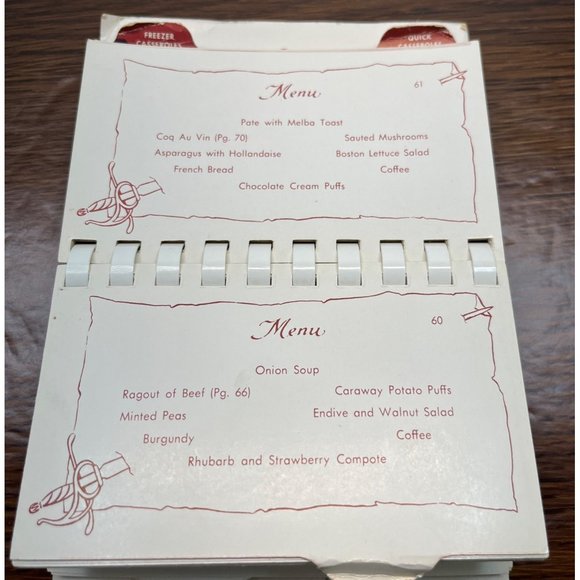 FREEZER
CASSEROLES
QUICK
CASSEROLES
Menu 61
Pate with Melba Toast
Coq Au Vin (Pg. 70) Sauted Mushrooms
Asparagus with Hollandaise Boston Lettuce Salad
French Bread Coffee
Chocolate Cream Puffs
Menu 60
Onion Soup
Ragout of Beef (Pg. 66) Caraway Potato Puffs
Minted Peas Endive and Walnut Salad
Burgundy Coffee
Rhubarb and Strawberry Compote